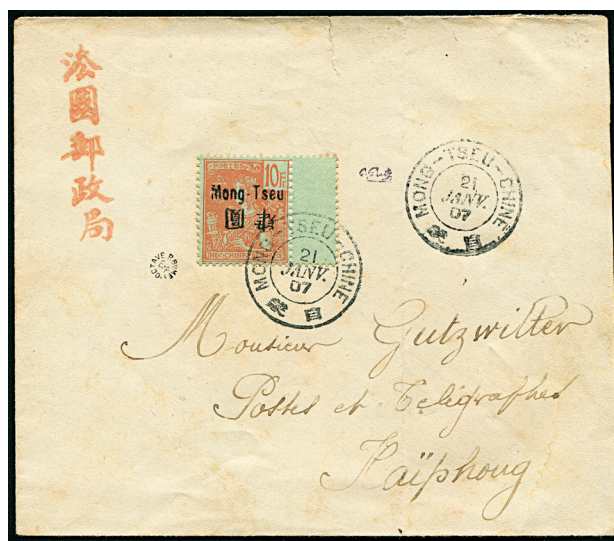 法國郵政局
POSTES
10 Fr
Mong-Tseu
肆圓
INDO-CHINE
MONG-TSEU-CHINE
21
JANV.
07
蒙自
MONG-TSEU-CHINE
21
JANV.
07
蒙自
OCTAVE BRUNEL
Monsieur Gutzwilter
Postes et Télégraphes
Haïphong